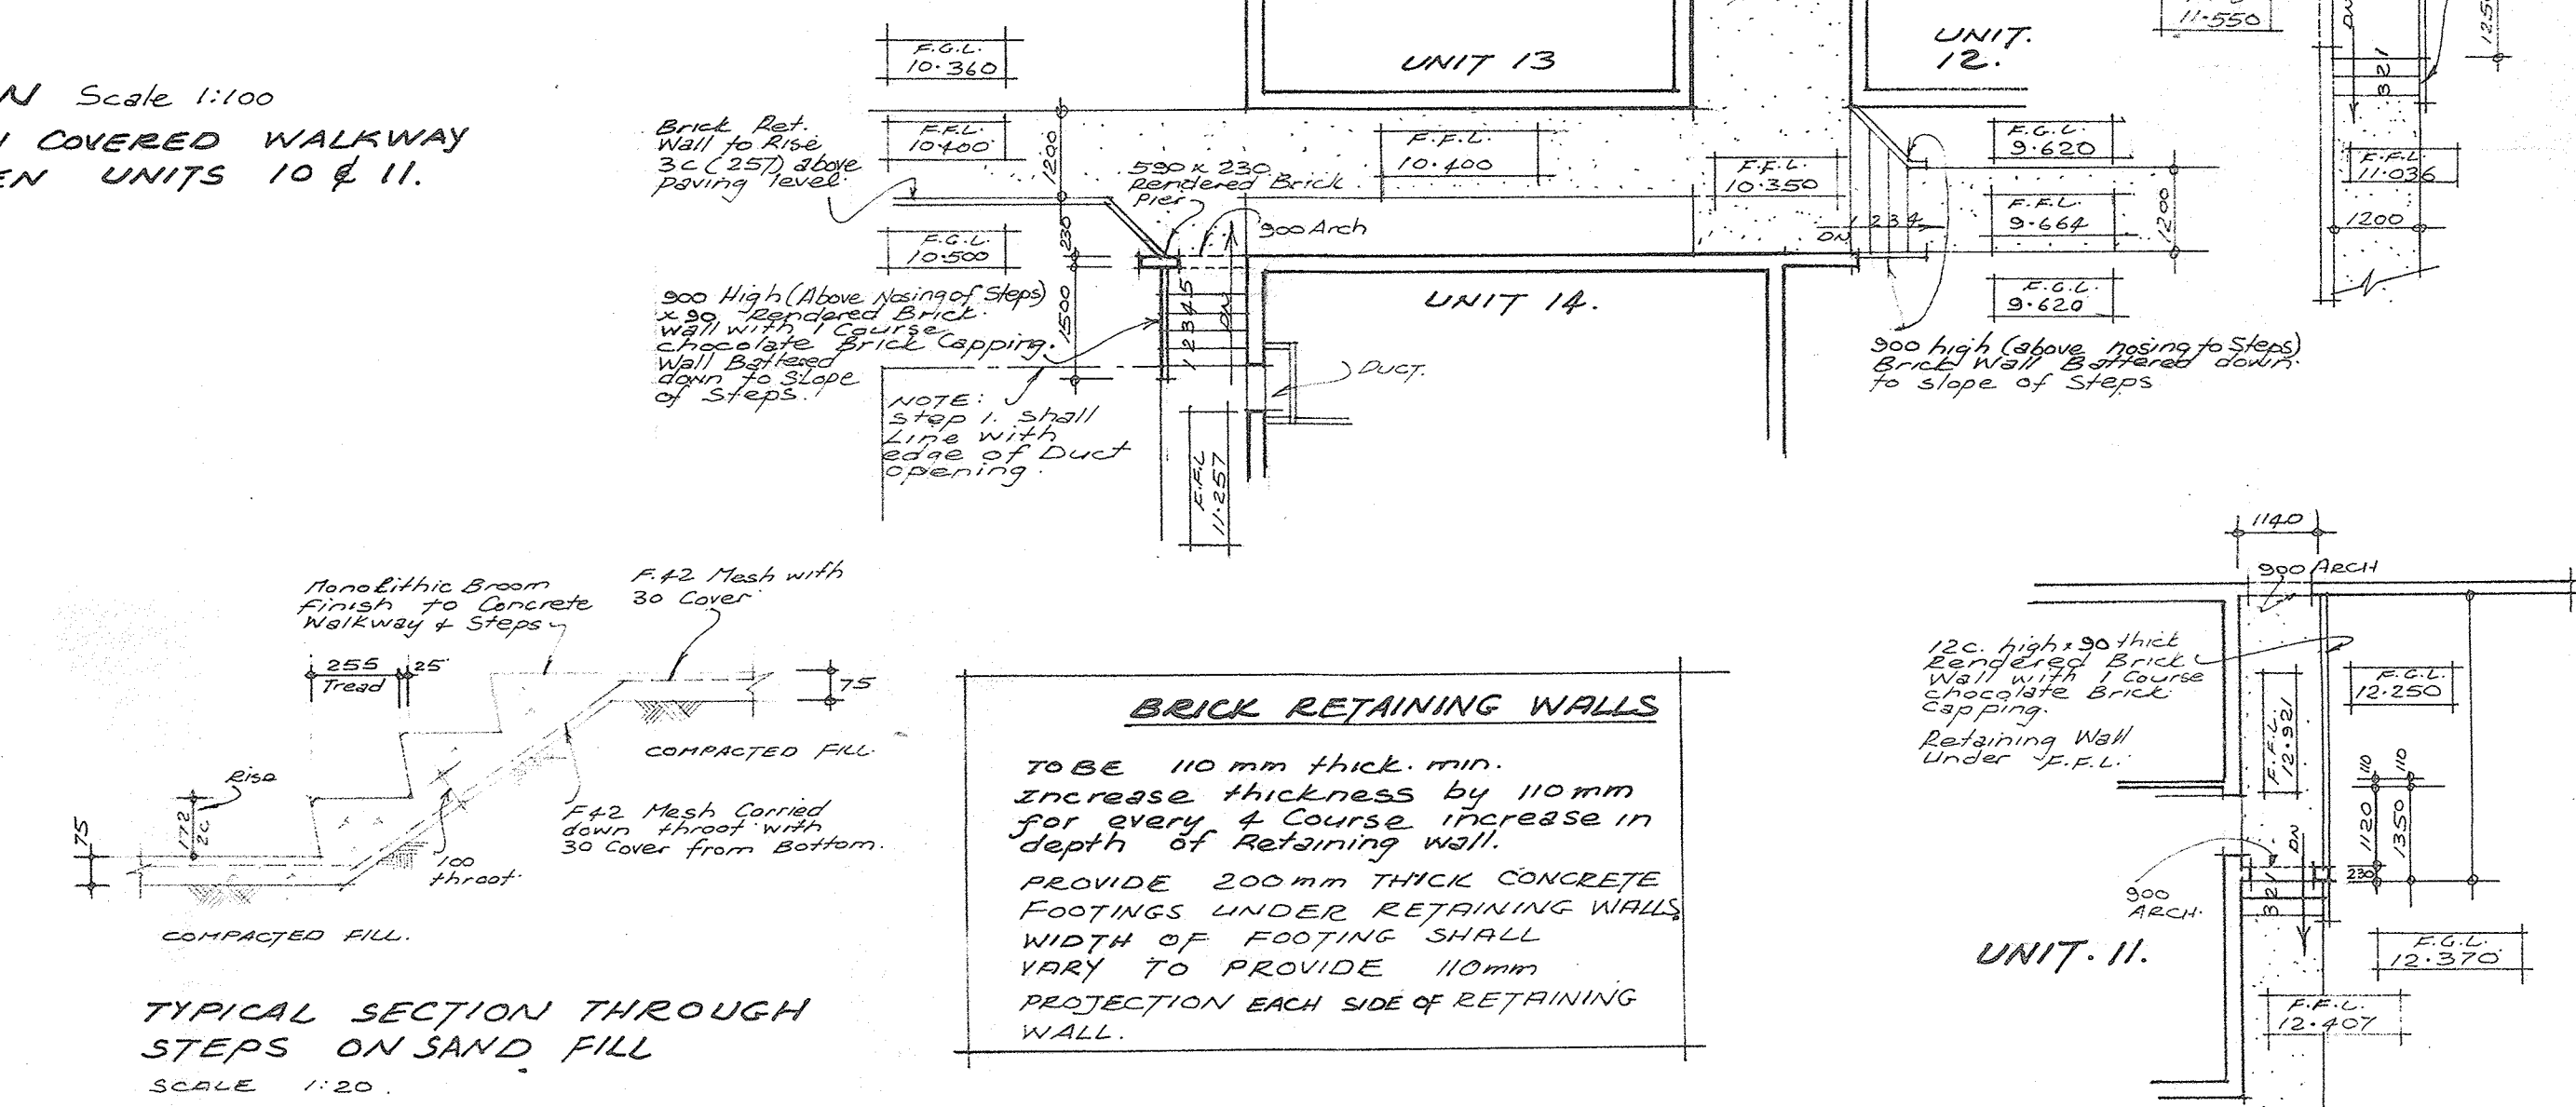 N Scale 1:100
COVERED WALKWAY
EN UNITS 10 & 11.
F.G.L.
10.360
Brick Ret.
Wall to Rise
3c (257) above
paving level.
F.F.L.
10.400
1200
590 x 230
Rendered Brick
Pier
900 Arch
230
1500
F.G.L.
10.500
900 High (Above Nosing of Steps)
x 90 Rendered Brick
wall with 1 Course
chocolate Brick Capping.
Wall Battered
down to Slope
of Steps.
NOTE:
Step 1. shall
Line with
edge of Duct
opening.
1 2 3 4 5
DN
F.F.L
11.257
DUCT.
UNIT 13
F.F.L.
10.400
F.F.L.
10.350
UNIT 14.
UNIT.
12.
F.G.L.
9.620
F.F.L.
9.664
1200
F.G.L.
9.620
DN
1 2 3 4
900 high (above nosing to Steps)
Brick Wall Battered down
to slope of Steps
11.550
DN
3 2 1
125
F.F.L.
11.036
1200
Monolithic Broom
Finish to Concrete
Walkway & Steps
F.42 Mesh with
30 Cover
255
Tread
25
75
COMPACTED FILL.
Rise
172
2c
75
F42 Mesh Carried
down throat with
30 Cover from Bottom.
100
throat
COMPACTED FILL.
TYPICAL SECTION THROUGH
STEPS ON SAND FILL
SCALE 1:20.
BRICK RETAINING WALLS
TO BE 110 mm thick. min.
Increase thickness by 110mm
for every 4 Course increase in
depth of Retaining wall.
PROVIDE 200mm THICK CONCRETE
FOOTINGS UNDER RETAINING WALLS
WIDTH OF FOOTING SHALL
VARY TO PROVIDE 110mm
PROJECTION EACH SIDE OF RETAINING
WALL.
1140
900 ARCH
12c. high x 90 thick
Rendered Brick
Wall with 1 Course
chocolate Brick
Capping.
Retaining Wall
Under F.F.L.
F.F.L.
12.921
F.G.L.
12.250
110
110
1120
1350
230
DN
3 2 1
900
ARCH.
UNIT. 11.
F.G.L.
12.370
F.F.L.
12.407